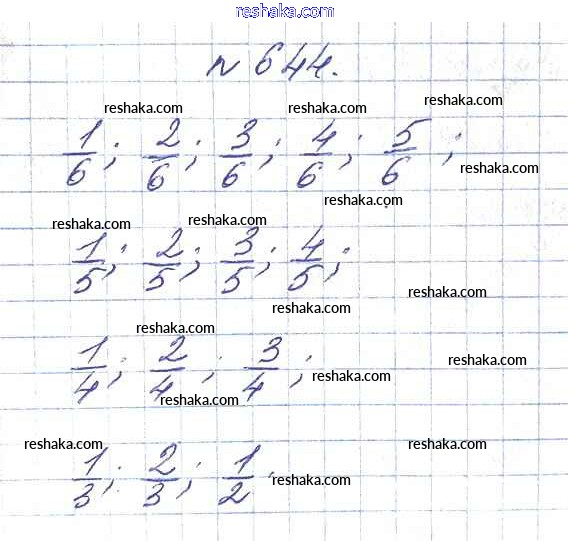 reshaka.com
N 644.
reshaka.com reshaka.com reshaka.com
1/6; 2/6; 3/6; 4/6; 5/6;
reshaka.com
reshaka.com
reshaka.com reshaka.com
1/5; 2/5; 3/5; 4/5;
reshaka.com reshaka.com
reshaka.com
1/4; 2/4; 3/4;
reshaka.com
reshaka.com
reshaka.com
reshaka.com reshaka.com
1/3; 2/3; 1/2.
reshaka.com